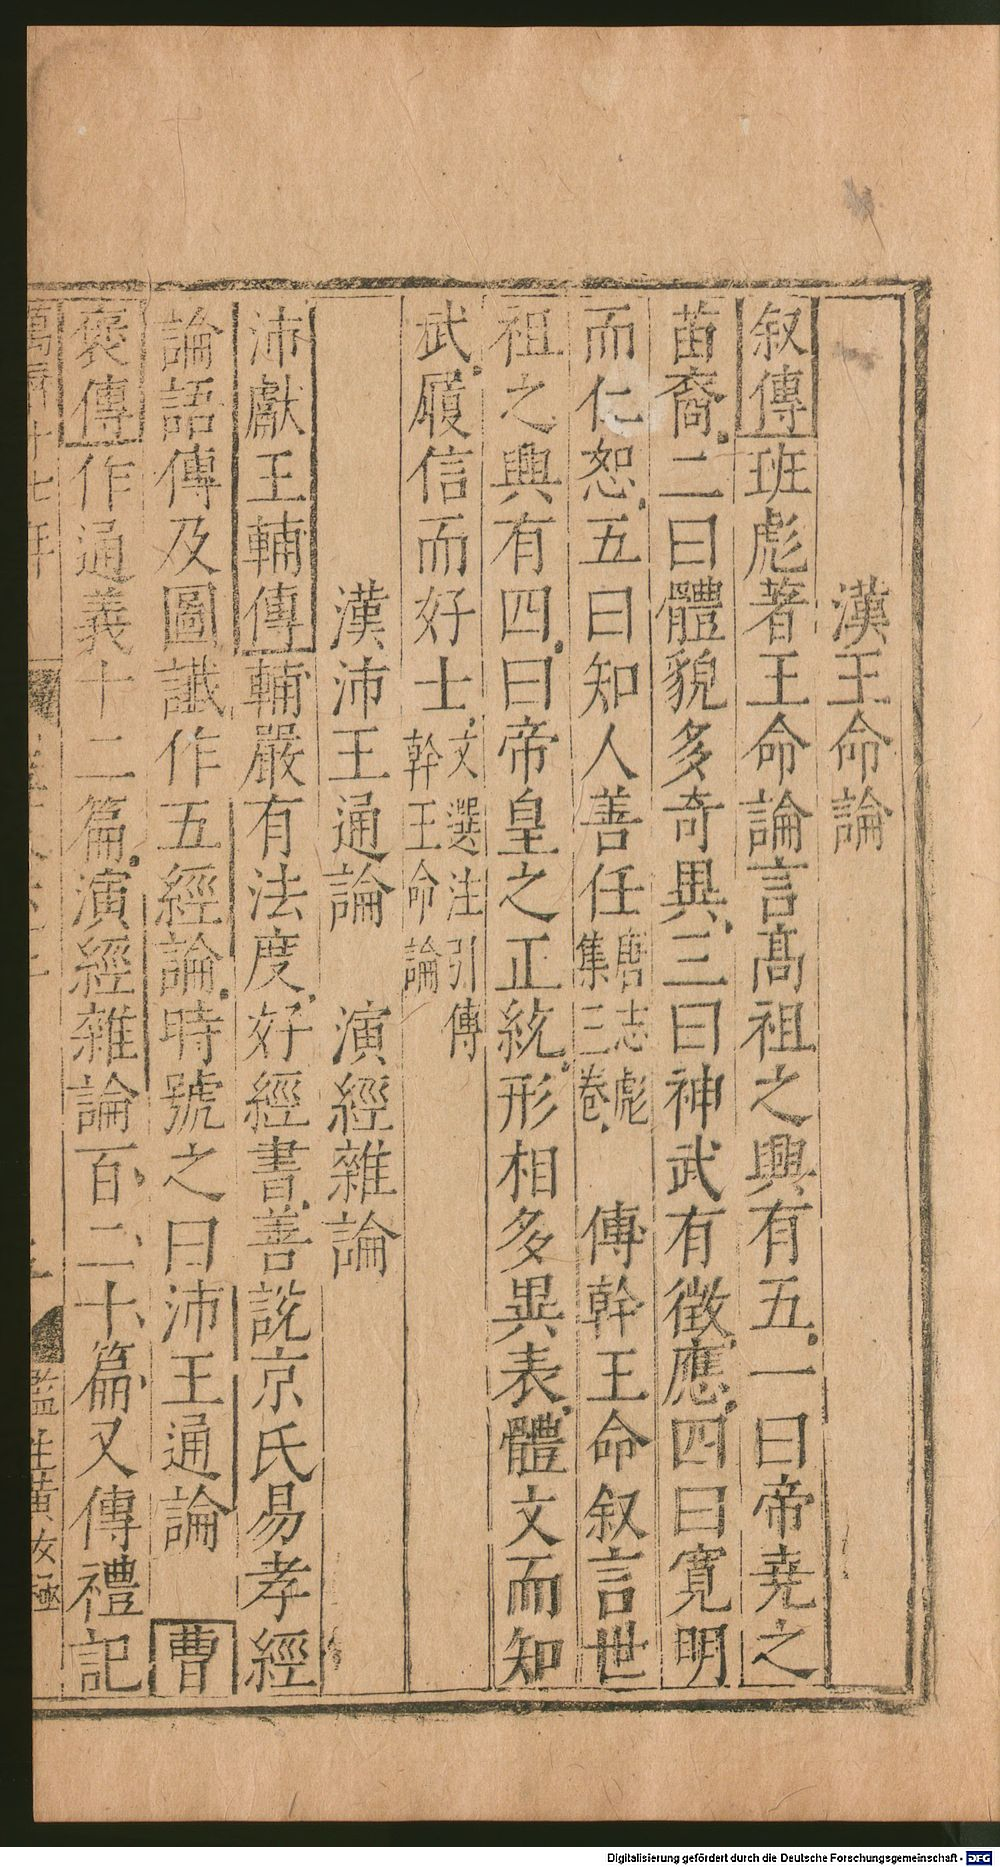 漢王命論
叙傳班彪著王命論言髙祖之興有五一曰帝堯之
苗裔二曰體貌多奇異三曰神武有徵應四曰寬明
而仁恕五曰知人善任唐志彪集三卷傳幹王命叙言世
祖之興有四曰帝皇之正統形相多異表體文而知
武履信而好士文選注引傳幹王命論
漢沛王通論 演經雜論
沛獻王輔傳輔嚴有法度好經書善說京氏易孝經
論語傳及圖讖作五經論時號之曰沛王通論 曹
褒傳作通義十二篇演經雜論百二十篇又傳禮記
監生黄汝極
Digitalisierung gefördert durch die Deutsche Forschungsgemeinschaft - DFG